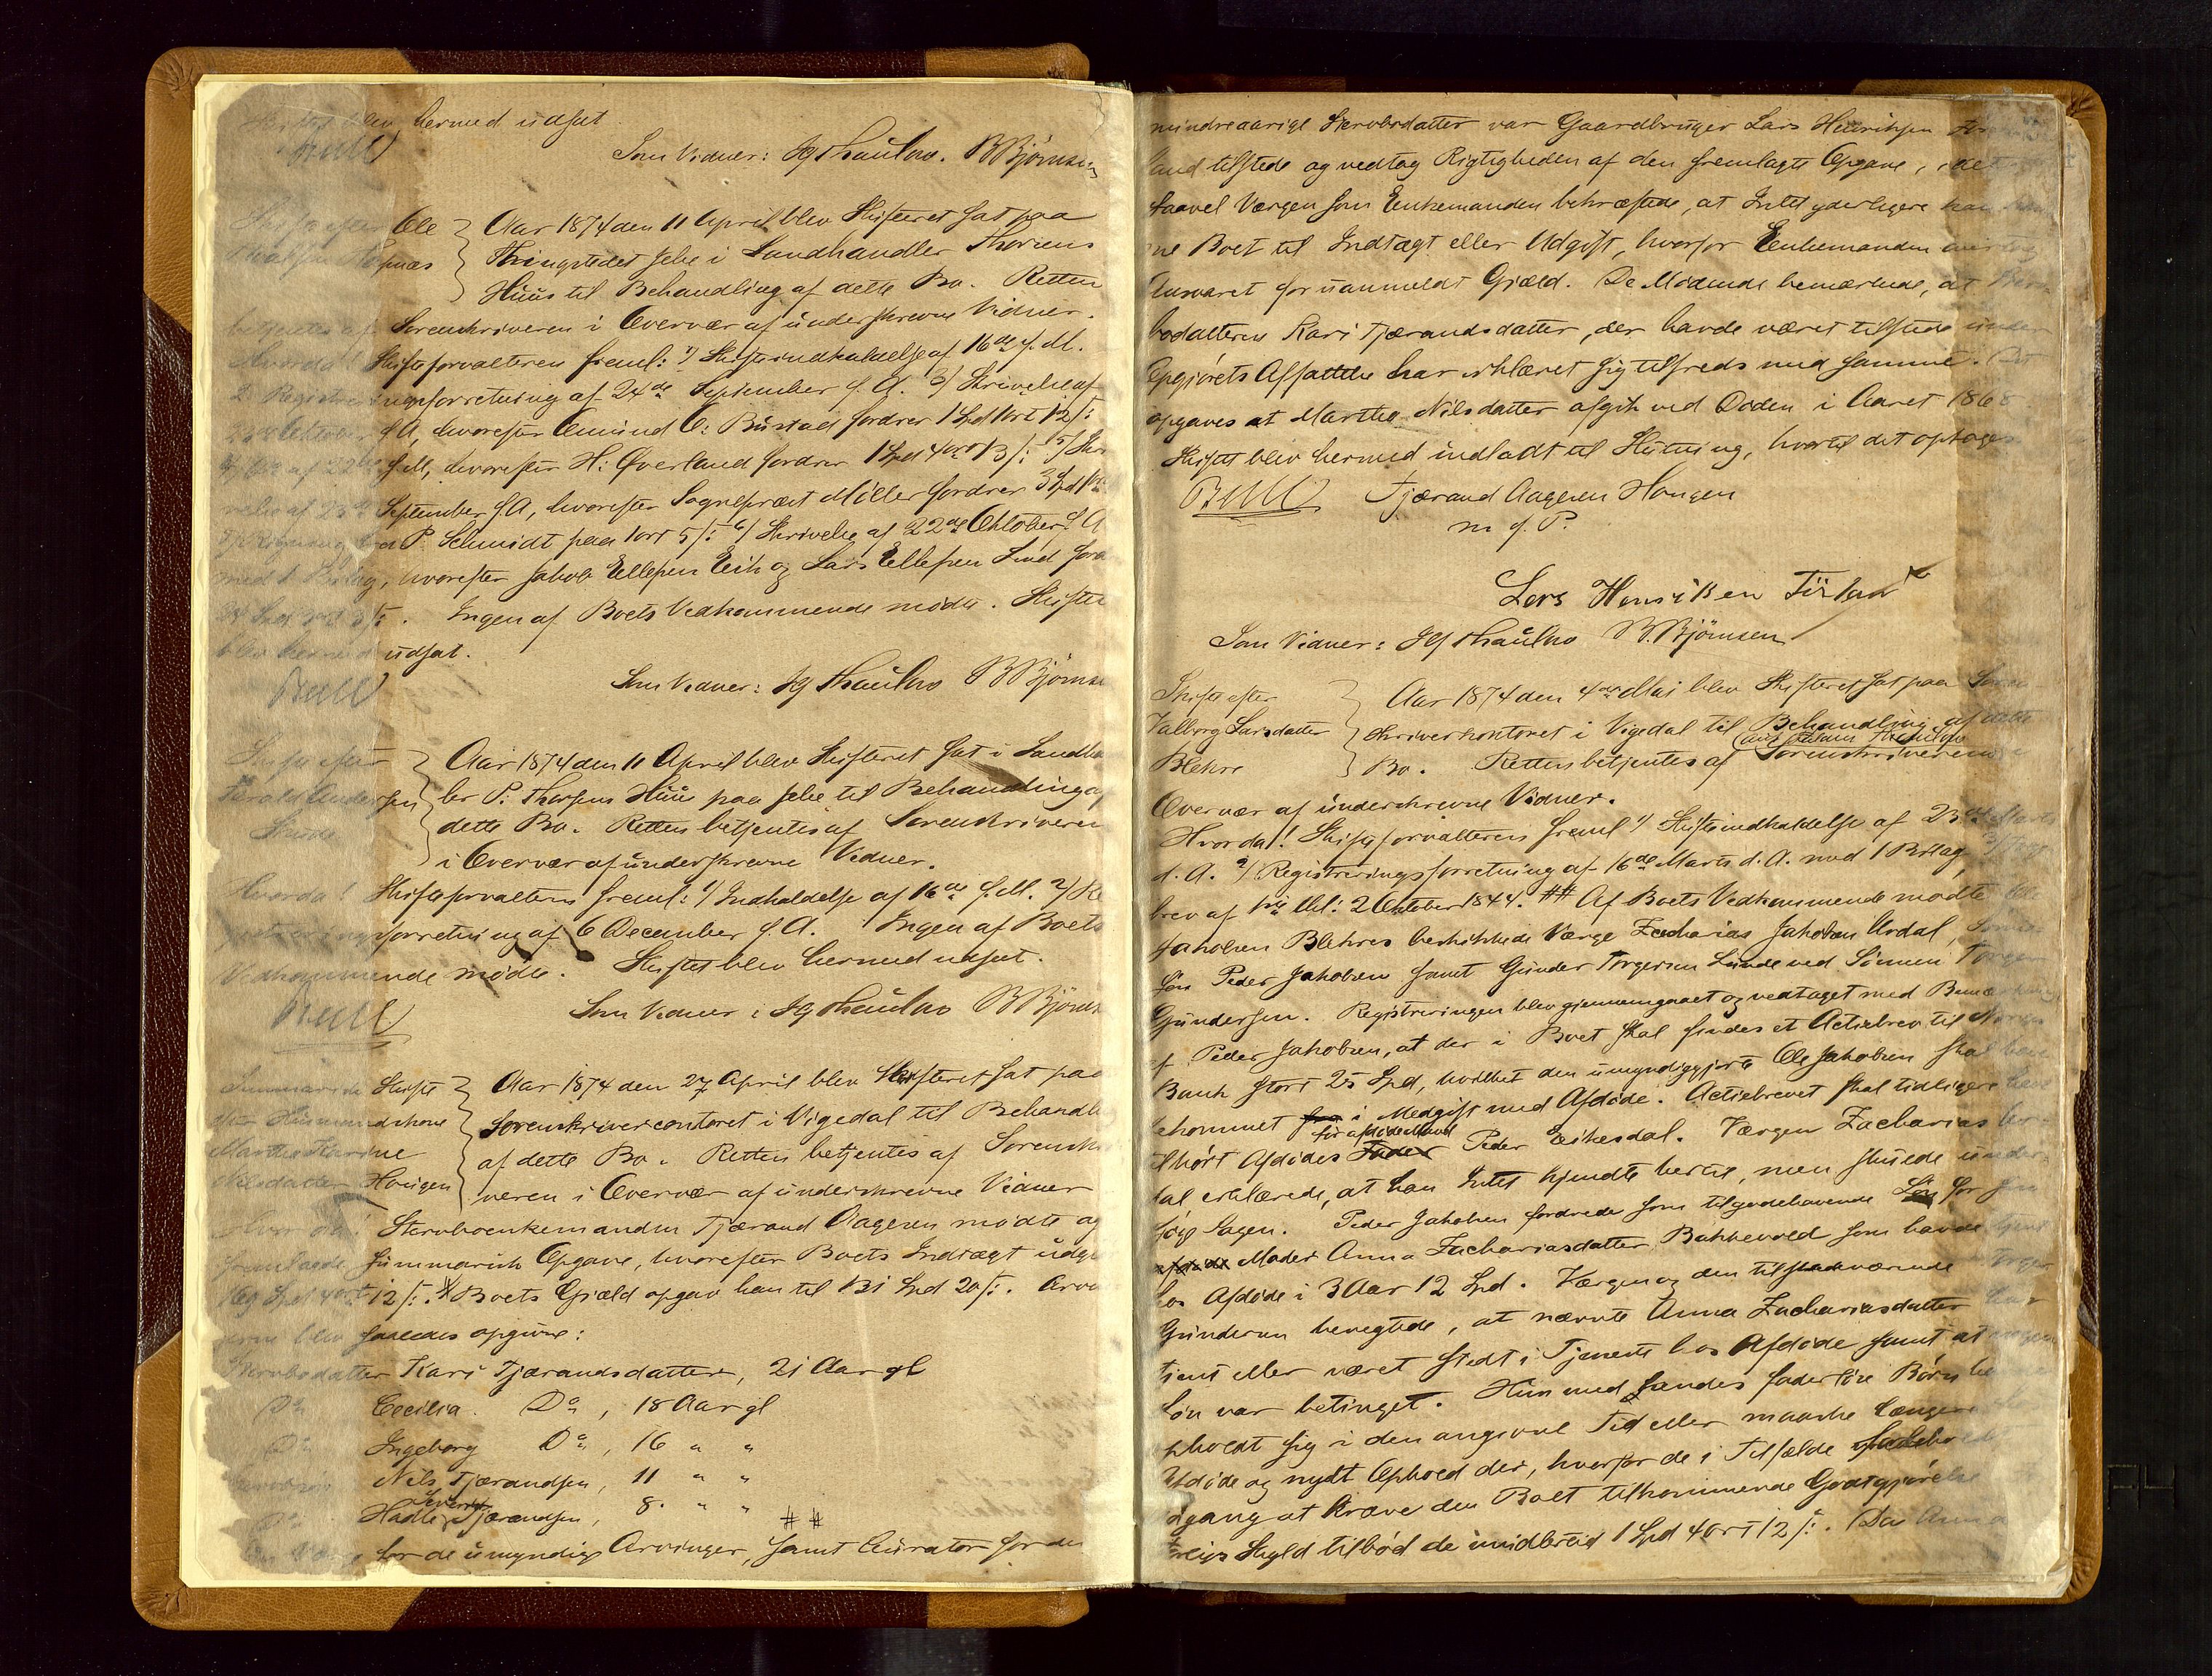 Skiftet blev hermed udsat.
Bull
Som Vidner: Thaulow. B Bjørnsen
Skifte efter Ole } Aar 1874 den 11 April blev Skifteret sat paa
næs } Thingstedet Jelse i Landhandler Thorsens
Huus til Behandling af dette Bo. Retten
betjentes af Sorenskriveren i Overvær af underskrevne Vidner.
Hvorda! Skifteforvalteren freml: 1) Skifteindkaldelse af 16de f. M.
2) Registreringsforretning af 24de September f. A. 3) Skrivelse af
Oktober f A, hvorefter Amund O: Bustad fordrer 1 Spd 1 ort 12 s:
f. M, hvorefter H: Øverland fordrer 1 Spd 4 ort 13 s: 5) Skri
velse af 23de September f. A, hvorefter Sognepræst Møller fordrer 3 Spd
Regning fra P. Schmidt paa 1 ort 5 s: 6) Skrivelse af 22de Oktober f. A
med 1 Bilag, hvorefter Jakob Ellefsen Eik og Lars Ellefsen Lund ford
24 Spd 3 s. Ingen af Boets Vedkommende mødte. Skiftet
blev hermed udsat.
Bull
Som Vidner: Thaulow B Bjørnse
Skifte efter } Aar 1874 den 11 April blev Skifteret sat i Landha
Andersen } ler P: Thorsens Huus paa Jelse til Behandling af
dette Bo. Retten betjentes af Sorenskriveren
i Overvær af underskrevne Vidner.
Hvorda! Skifteforvalteren freml: 1) Indkaldelse af 16de f. M. 2) Re
gistreringsforretning af 6 December f. A. Ingen af Boets
Vedkommende mødte. Skiftet blev hermed udsat.
Bull
Som Vidner: Thaulow B Bjørns
Summarisk Skifte } Aar 1874 den 27 April blev Skifteret sat paa
efter Husmandskone } Sorenskrivercontoret i Vigedal til Behandl
Martha Karine } af dette Bo. Retten betjentes af Sorenskri
Nilsdatter Hougen } veren i Overvær af underskrevne Vidner
Hvorda! Stervboenkemanden Tjærand Aagesen mødte og
fremlagde summarisk Opgave, hvorefter Boets Indtægt udgj
Spd 4 ort 12 s. # Boets Gjæld opgav han til 31 Spd 20 s. Arvin
gerne blev saaledes opgivne:
Stervbodatter Kari Tjærandsdatter, 21 Aar gl
Do Cecilia Do, 18 Aar gl
Do Ingeborg Do, 16 " "
Nils Tjærandsen, 11 " "
Do Hadle Tjærandsen, 8 " "
##
Som Værge for de umyndige Arvinger, samt Curator for den
mindreaarige Stervbodatter var Gaardbruger Lars Henriksen
land tilstede og vedtog Rigtigheden af den fremlagte Opgave, idet
saavel Værgen som Enkemanden bekræftede, at Intet yderligere kan
ne Boet til Indtægt eller Udgift, hvorfor Enkemanden
Ansvaret for uanmeldt Gjæld. De Mødende bemærkede, at Sterv
bodatteren Kari Tjærandsdatter, der havde været tilstede under
Opgjørets Affattelse har erklæret sig tilfreds med samme. Det
opgaves at Martha Nilsdatter afgik ved Døden i Aaret 1868
Skiftet blev hermed indladt til Slutning, hvortil det optages
Bull Tjærand Aagesen Hougen
m. f. P.
Lars Henriksen
Som Vidner: Thaulow B. Bjørnsen
Skifte efter } Aar 1874 den 4de Mai blev Skifteret sat paa Soren
Valborg Larsdatter } skriverkontoret i Vigedal til Behandling af dette
Blehre } Bo. Retten betjentes af Sorenskriveren i
Overvær af underskrevne Vidner.
Hvorda! Skifteforvalteren freml 1) Skifteindkaldelse af 23de Marts
d. A. 2) Registreringsforretning af 16de Marts d. A. med 1 Bilag,
brev af 2 Oktober 1844. ## Af Boets Vedkommende mødte Ole
Jakobsen Blehres beskikkede Værge Zacharias Jakobsen Ardal,
Søn Peder Jakobsen samt Gunder Torgersen Lunde ved Sønnen Torger
Gundersen. Registreringen blev gjennemgaaet og vedtaget med Bemærkning
af Peder Jakobsen, at der i Boet skal findes et Actiebrev til Norges
Bank stort 25 Spd, hvilket den umyndiggjorte Ole Jakobsen skal have
bekommet i Medgift med Afdøde. Actiebrevet skal tidligere have
tilhørt Afdødes før afdøde Mand Peder Eikesdal. Værgen Zacharias Ar
dal erklærede, at han Intet kjendte hertil, men skulde under
søge Sagen. Peder Jakobsen fordrede som tilgodehavende Løn for sin
Moder Anna Zachariasdatter Bakkevold som havde tjent
hos Afdøde i 3 Aar 12 Spd. Værgen og den tilstedeværende Torger
Gundersen benegtede, at nævnte Anna Zachariasdatter har
tjent eller været stedt i Tjeneste hos Afdøde samt, at nogen
Løn var betinget. Hun med hendes faderløse Børn
opholdt sig i den angivne Tid eller maaske længere
Afdøde og nydt Ophold der, hvorfor de i Tilfælde
Adgang at kræve den Boet tilkommende Godtgjørelse
Skyld tilbød de imidlertid 1 Spd 4 ort 12 s:. Da Anna